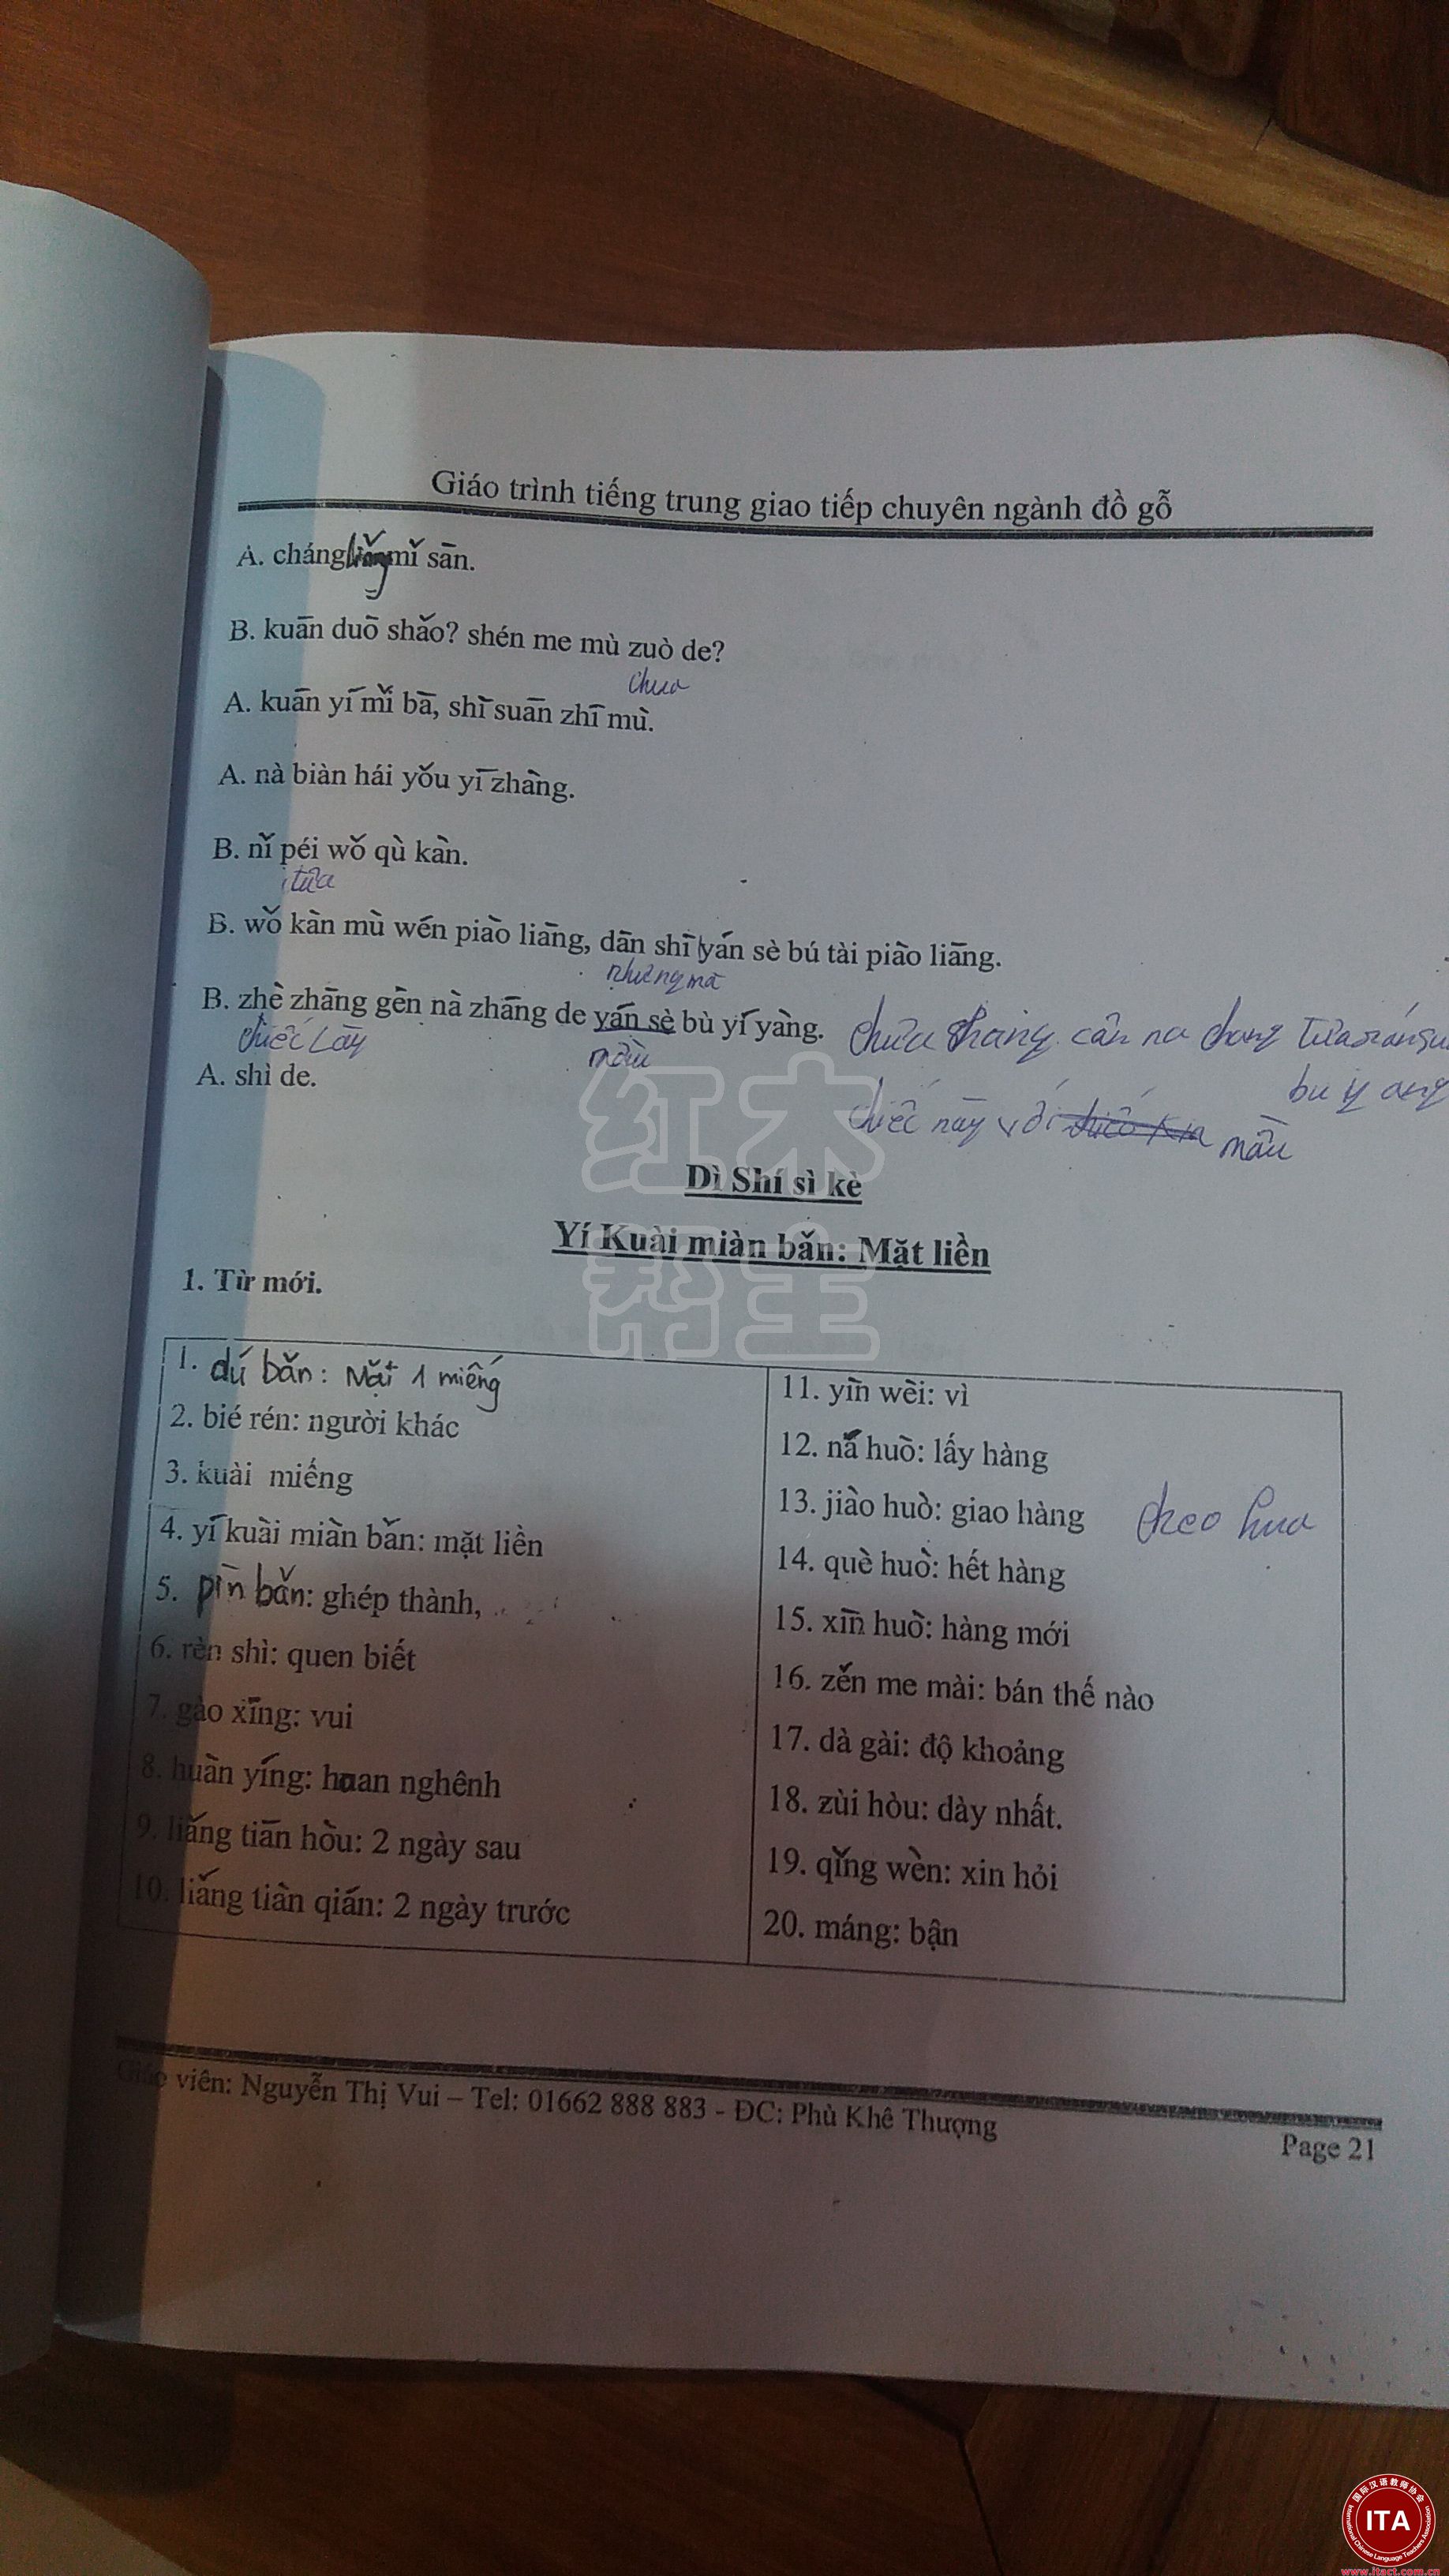 Giáo trình tiếng trung giao tiếp chuyên ngành đồ gỗ
A. cháng liǎng mǐ sān.
B. kuān duō shǎo? shén me mù zuò de?
chua
A. kuān yí mǐ bā, shì suān zhī mù.
A. nà biàn hái yǒu yī zhàng.
B. nǐ péi wǒ qù kàn.
tưa
B. wǒ kàn mù wén piào liāng, dān shì yán sè bú tài piào liāng.
nhưng mà
B. zhè zhāng gēn nà zhāng de yán sè bù yí yàng.
chiếc Lày
màu
A. shì de.
chiếc này với màu
红木
帮主
Dì Shí sì kè
Yí Kuài miàn bǎn: Mặt liền
1. Từ mới.
1. dú bǎn: Mặt 1 miếng
2. bié rén: người khác
3. kuài miếng
4. yí kuài miàn bǎn: mặt liền
5. pìn bǎn: ghép thành,
6. rèn shì: quen biết
7. gào xīng: vui
8. huàn yíng: hoan nghênh
9. liǎng tiān hòu: 2 ngày sau
10. liǎng tiàn qián: 2 ngày trước
11. yīn wèi: vì
12. ná huò: lấy hàng
13. jiào huò: giao hàng
cheo hua
14. què huò: hết hàng
15. xīn huò: hàng mới
16. zěn me mài: bán thế nào
17. dà gài: độ khoảng
18. zùi hòu: dày nhất.
19. qǐng wèn: xin hỏi
20. máng: bận
Giáo viên: Nguyễn Thị Vui – Tel: 01662 888 883 - ĐC: Phù Khê Thượng
Page 21
国际汉语教师协会
ITA
International Chinese Language Teachers Association
www.itact.com.cn